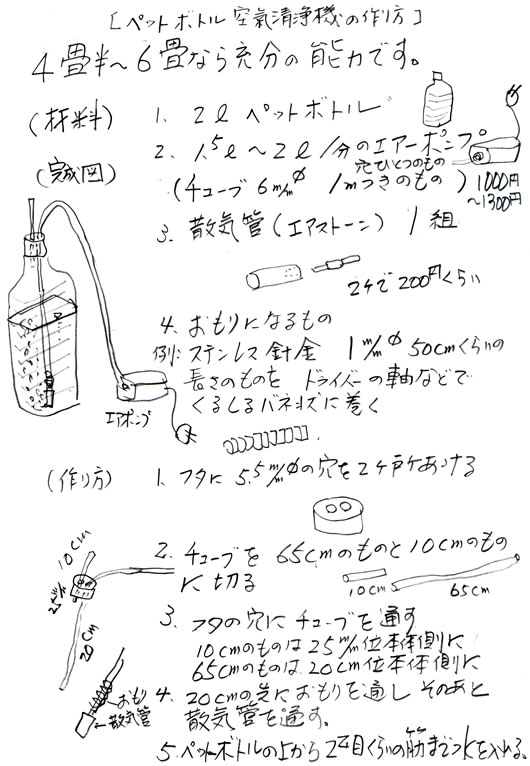 [ペットボトル空氣清浄機の作り方]
4畳半〜6畳なら充分の能力です。
(材料)
1. 2ℓ ペットボトル
2. 1.5ℓ〜2ℓ/分のエアーポンプ
穴ひとつのもの
(チューブ 6m/mφ 1mつきのもの) 1000円
〜1300円
(完成図)
3. 散気管(エアストーン) 1組
2ケで200円くらい
4. おもりになるもの
例: ステンレス針金 1m/mφ 50cmくらいの
長さのものを ドライバーの軸などで
くるしるバネ状に巻く
エアポンプ
(作り方)
1. フタに 5.5m/mφの穴を2ヶ所あける
2. チューブを 65cmのものと10cmのもの
に切る
10cm
65cm
10cm
25m/m
20cm
3. フタの穴にチューブを通す
10cmのものは25m/m位本体側に
65cmのものは20cm位本体側に
4. 20cmの先におもりを通し そのあと
散気管を通す。
おもり
←散気管
5. ペットボトルの上から2本目くらいの筋まで水を入れる。